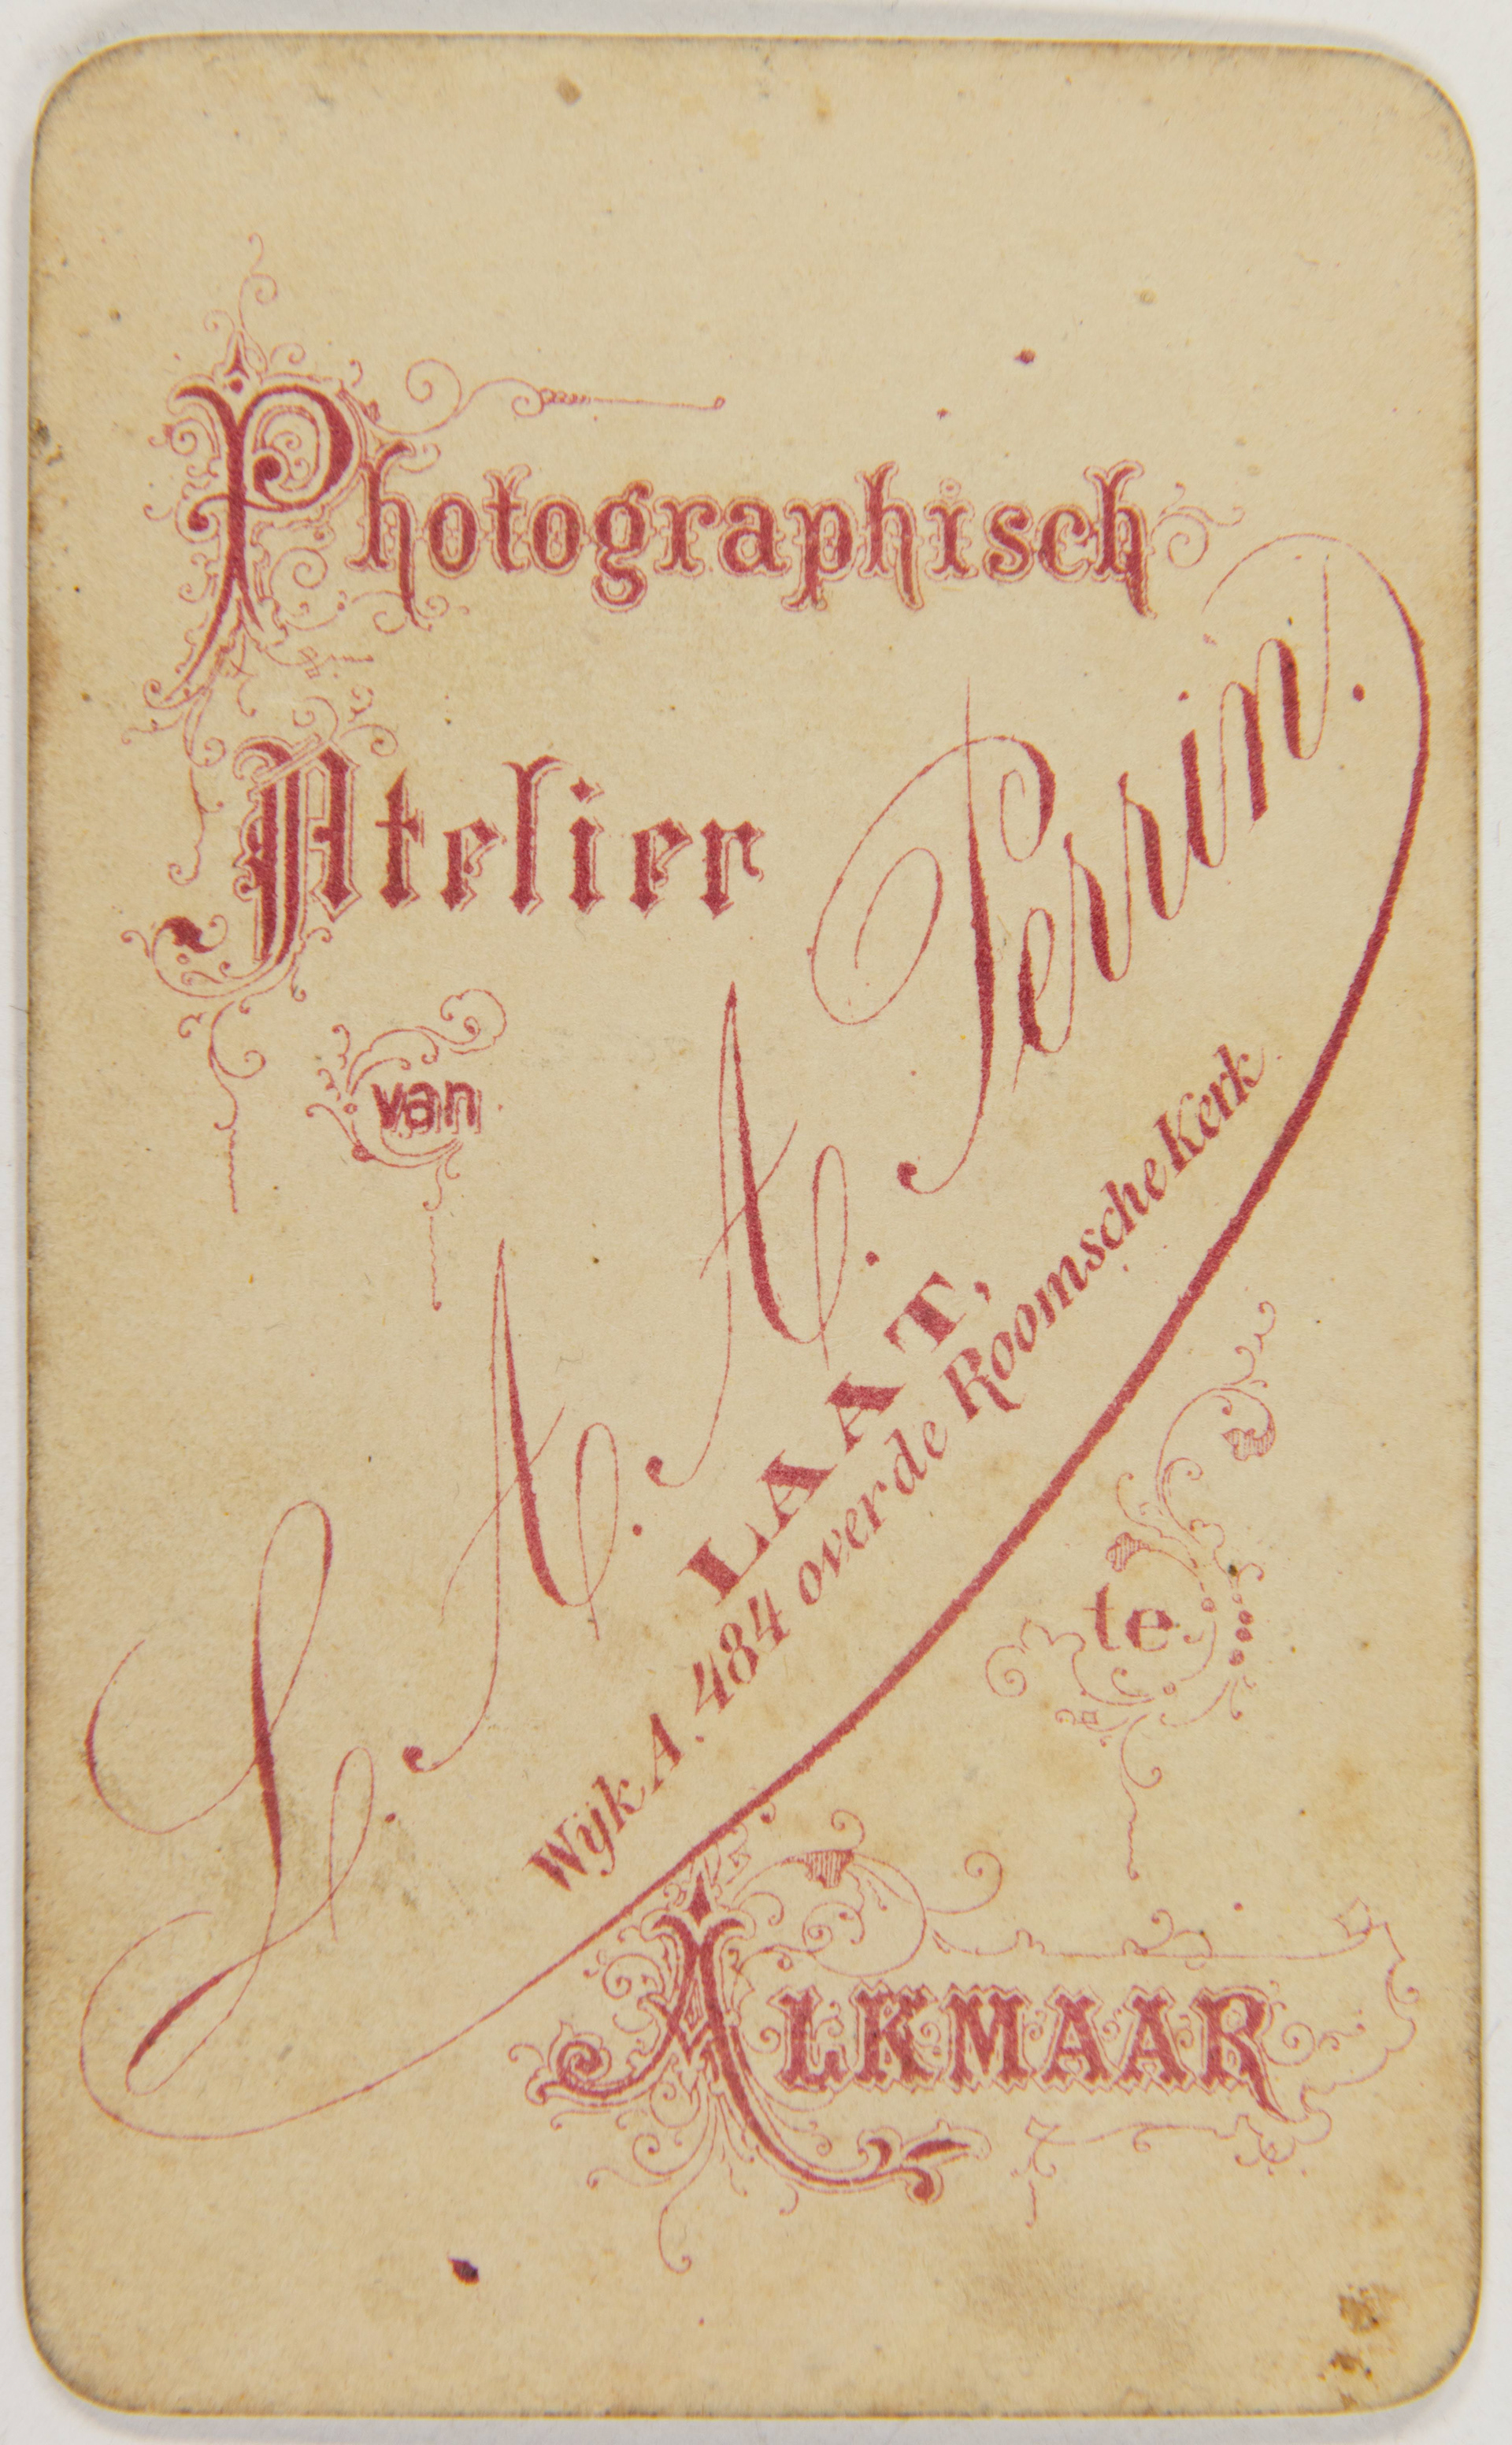 Photographisch
Atelier
van
L. A. A. Perrin.
LAAT,
Wijk A. 484 over de Roomsche Kerk
te
ALKMAAR